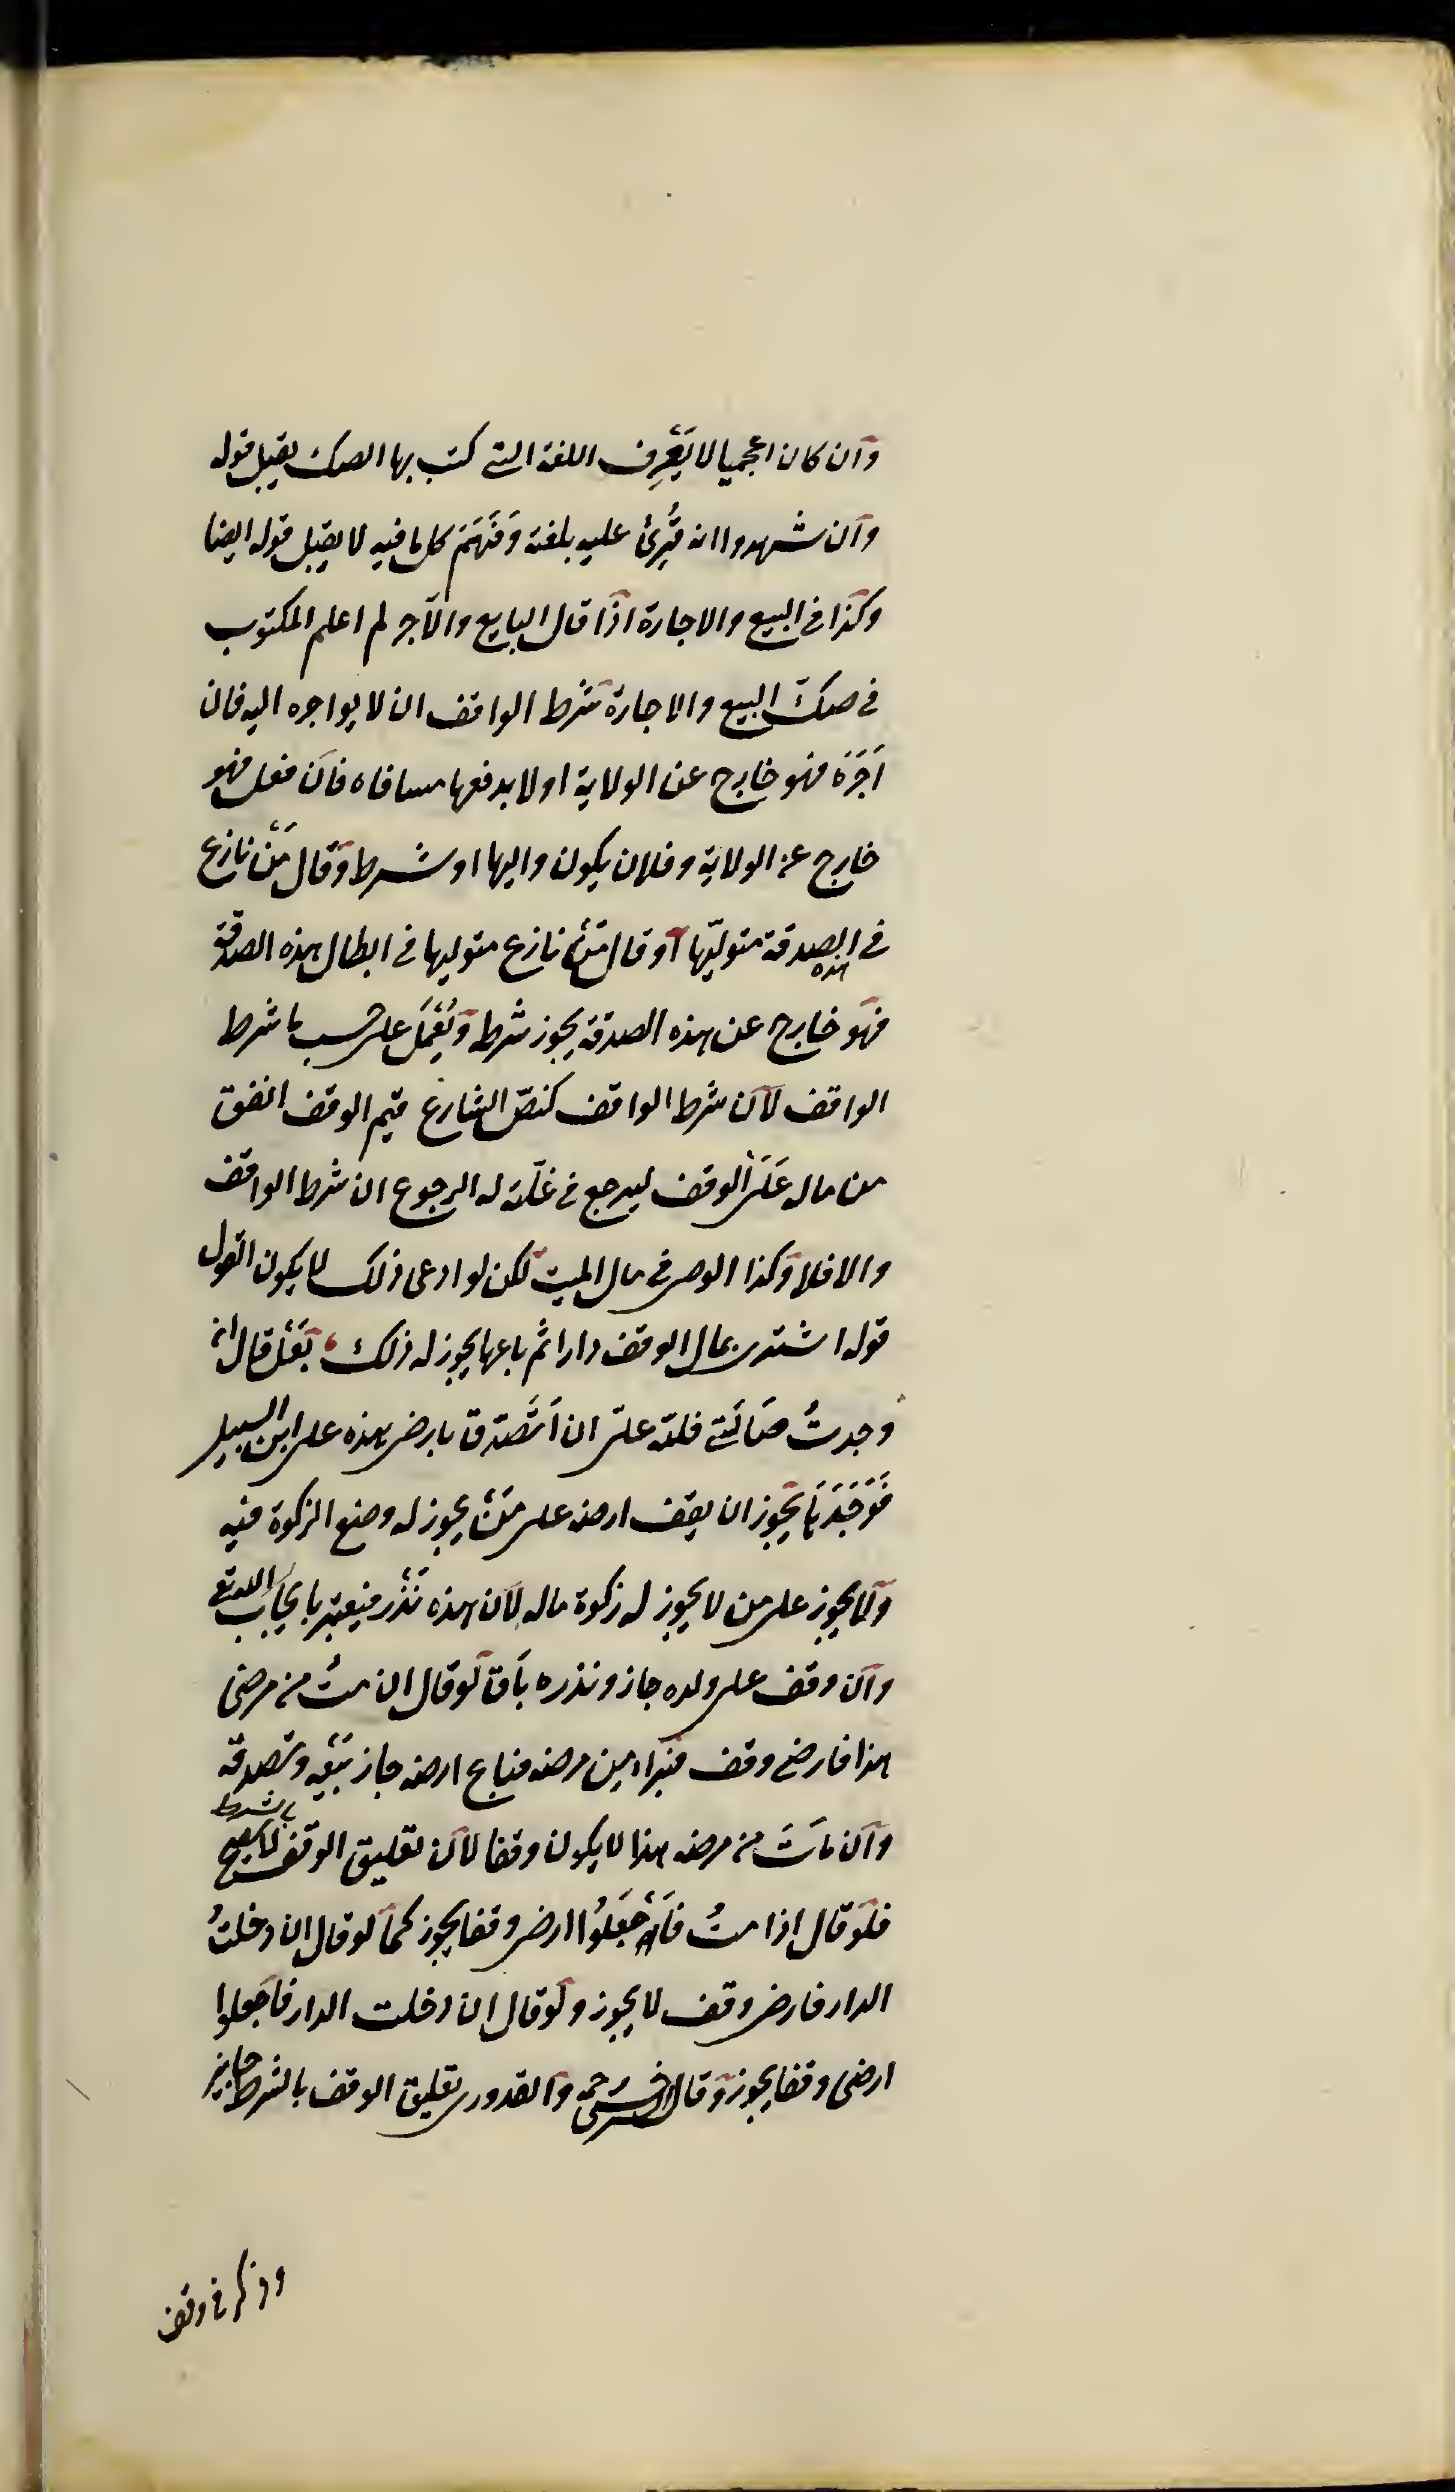 وان كان اعجميا لا يَعْرِف اللغة التى كتب بها الصك يقبل قوله
وان شهدوا انه قُرِئ عليه بلغته وَفَهِمَ كل ما فيه لا يقبل قوله ايضا
وكذا فى البيع والاجارة اذا قال البايع والآجر لم اعلم المكتوب
فى صكّ البيع والاجارة شرط الواقف ان لا يواجره اليه فان
آجَرَهَ فهو خارج عن الولاية او لا يدفعها مساقاة فان فعل فهو
خارج عن الولاية وفلان يكون واليها او شرط وقال مَنْ نازع
فى هذه الصدقة متوليّها او قال مَنْ نازع متوليها فى ابطال هذه الصدقة
فهو خارج عن هذه الصدقة يجوز شرطه ويُعْمَل على حسب ما شرط
الواقف لان شرط الواقف كنصّ الشارع قيم الوقف انفق
من ماله عَلَى الوقف ليرجع فى غلّته له الرجوع ان شرط الواقف
والا فلا وكذا الوصى فى مال الميت لكن لو ادعى ذلك لا يكون القول
قوله اشترى بمال الوقف دارا ثم باعها يجوز له ذلك رَجُل قال ان
وجدتُ ضَالَّتى فلله علىّ ان اَتَصَدَّق بارضى هذه على ابن السبيل
فَوَجَدَهَا يجوز ان يقف ارضه على مَنْ يجوز له وضع الزكوة فيه
ولا يجوز على من لا يجوز له زكوة ماله لان هذه نَذْر فيعتبر بايجاب الله تع
وان وقف على ولده جاز ونذره بَاق لو قال ان متُّ من مرضى
هذا فارضى وقف فبرأ من مرضه فباع ارضه جاز بَيْعُه وتصدقه
وان مَاتَ من مرضه هذا لا يكون وقفا لان تعليق الوقف بالشرط لا يصح
فلو قال اذا متُّ فَاجْعَلُوا ارضى وقفا يجوز كما لو قال ان دخلتُ
الدار فارضى وقف لا يجوز ولو قال ان دخلت الدار فاجعلوا
ارضى وقفا يجوز وقال السرخسى رحمه والقدورى تعليق الوقف بالشرط جايز
وذكر فى وقف